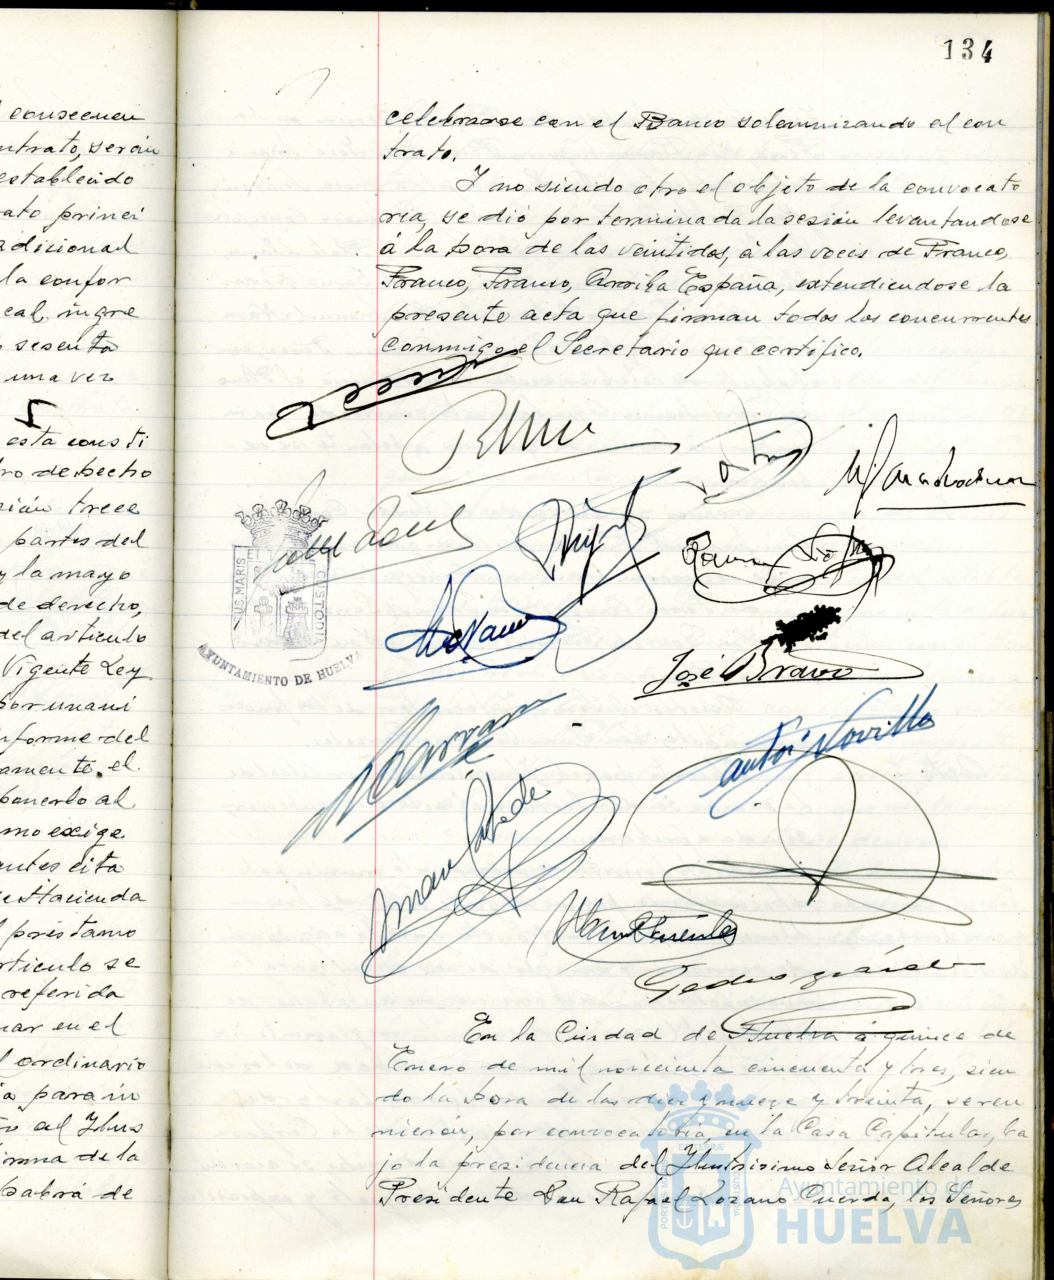 consecuen
ntrato, serán
establecido
ato princi
adicional
la confor
cal ingre
sesenta
una vez
esta consti
ro de hecho
sión trece
partes del
y la mayo
de derecho,
del artículo
Vigente Ley
por unani
nforme del
amente, el
ponerlo al
mo exige
antes cita
de Hacienda
l préstamo
rticulo se
referida
nar en el
l ordinario
a para in
to al Ilus
irma de la
habrá de
134
celebrarse con el Banco solemnizando el con
trato.
Y no siendo otro el objeto de la convocato
ria, se dió por terminada la sesión levantandose
á la hora de las veintidos, á las voces de Franco,
Franco, Franco, Arriba España, extendiendose la
presente acta que firman todos los concurrentes
conmigo el Secretario que certifico.
US MARIS ET CUSTODIA
AYUNTAMIENTO DE HUELVA
José Bravo
Antº Novillo
Manuel
Pedro
En la Ciudad de Huelva á quince de
Enero de mil novecientos cincuenta y tres, sien
do la hora de las diez y nueve y treinta, se reu
nieron, por convocatoria, en la Casa Capitular, ba
jo la presidencia del Ilustrisimo Señor Alcalde
Presidente Don Rafael Lozano Cuerda, los Señores
Ayuntamiento de
HUELVA